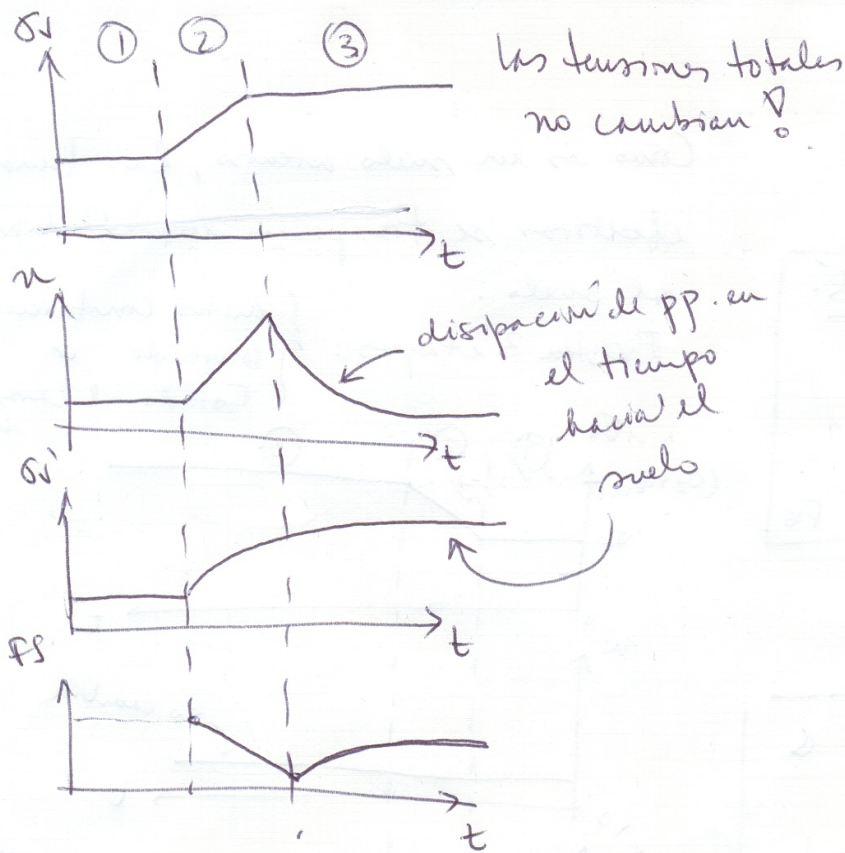 σv
① ② ③
las tensiones totales
no cambian!
t
u
disipación de pp. en
el tiempo
hacia el
suelo
t
σv'
t
FS
t